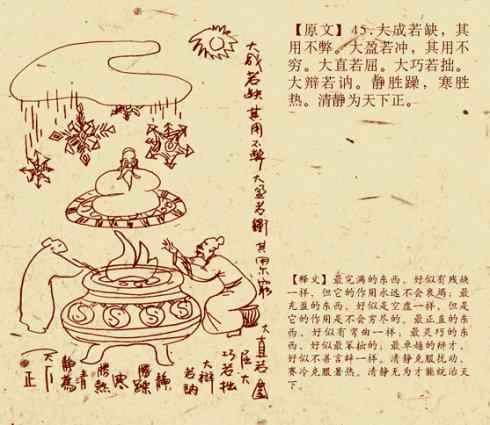 大成若缺其用不弊大盈若衝其用不窮
大直若
屈大
巧若拙
大辯
若訥
靜
勝躁
寒
勝熱
清
靜為
天下
正
【原文】45.大成若缺，其
用不弊。大盈若冲，其用不
穷。大直若屈。大巧若拙。
大辩若讷。静胜躁，寒胜
热。清静为天下正。
【释文】最完满的东西，好似有残缺
一样，但它的作用永远不会衰竭；最
充盈的东西，好似是空虚一样，但是
它的作用是不会穷尽的。最正直的东
西，好似有弯曲一样；最灵巧的东
西，好似最笨拙的；最卓越的辩才，
好似不善言辩一样。清静克服扰动，
寒冷克服暑热。清静无为才能统治天
下。